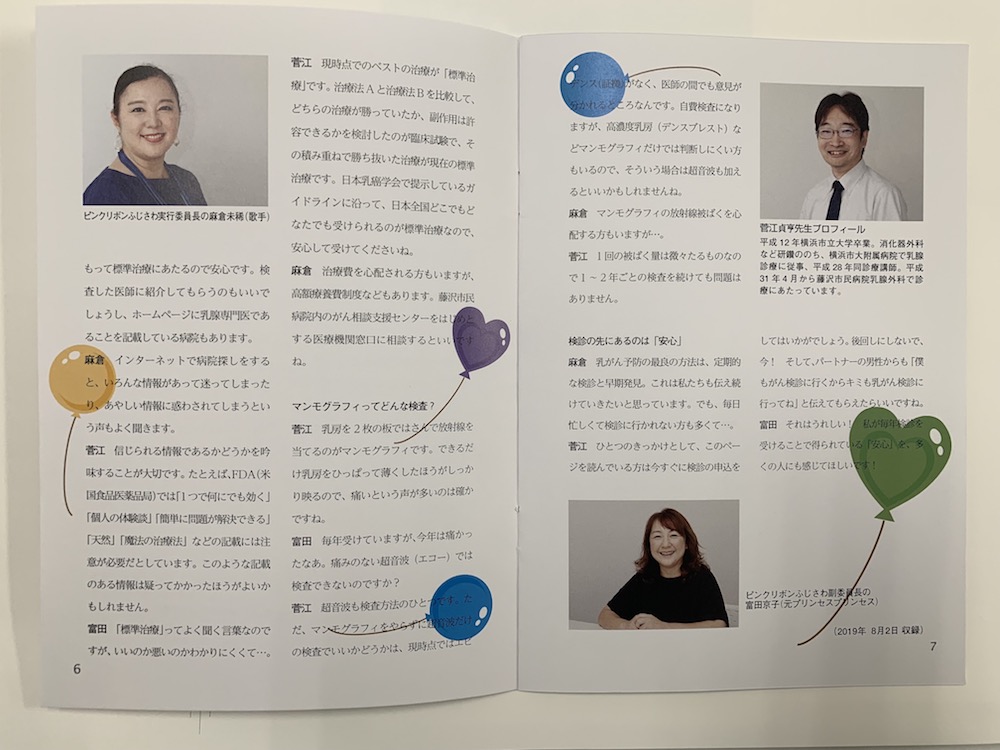 ピンクリボンふじさわ実行委員長の麻倉未稀(歌手)
もって標準治療にあたるので安心です。検
査した医師に紹介してもらうのもいいで
しょうし、ホームページに乳腺専門医であ
ることを記載している病院もあります。
麻倉　インターネットで病院探しをする
と、いろんな情報があって迷ってしまった
り、あやしい情報に惑わされてしまうとい
う声もよく聞きます。
菅江　信じられる情報であるかどうかを吟
味することが大切です。たとえば、FDA(米
国食品医薬品局)では「1つで何にでも効く」
「個人の体験談」「簡単に問題が解決できる」
「天然」「魔法の治療法」などの記載には注
意が必要だとしています。このような記載
のある情報は疑ってかかったほうがよいか
もしれません。
富田　「標準治療」ってよく聞く言葉なので
すが、いいのか悪いのかわかりにくくて…。
6
菅江　現時点でのベストの治療が「標準治
療」です。治療法Aと治療法Bを比較して、
どちらの治療が勝っていたか、副作用は許
容できるかを検討したのが臨床試験で、そ
の積み重ねで勝ち抜いた治療が現在の標準
治療です。日本乳癌学会で提示しているガ
イドラインに沿って、日本全国どこでもど
なたでも受けられるのが標準治療なので、
安心して受けてくださいね。
麻倉　治療費を心配される方もいますが、
高額療養費制度などもあります。藤沢市民
病院内のがん相談支援センターをはじめと
する医療機関窓口に相談するといいです
ね。
マンモグラフィってどんな検査？
菅江　乳房を2枚の板ではさんで放射線を
当てるのがマンモグラフィです。できるだ
け乳房をひっぱって薄くしたほうがしっか
り映るので、痛いという声が多いのは確か
ですね。
富田　毎年受けていますが、今年は痛かっ
たなあ。痛みのない超音波（エコー）では
検査できないのですか？
菅江　超音波も検査方法のひとつです。た
だ、マンモグラフィをやらずに超音波だけ
の検査でいいかどうかは、現時点ではエビ
デンス(証拠)がなく、医師の間でも意見が
分かれるところなんです。自費検査になり
ますが、高濃度乳房（デンスブレスト）な
どマンモグラフィだけでは判断しにくい方
もいるので、そういう場合は超音波も加え
るといいかもしれませんね。
麻倉　マンモグラフィの放射線被ばくを心
配する方もいますが…。
菅江　1回の被ばく量は微々たるものなの
で1～2年ごとの検査を続けても問題は
ありません。
菅江貞亨先生プロフィール
平成12年横浜市立大学卒業。消化器外科
など研鑽ののち、横浜市大附属病院で乳腺
診療に従事、平成28年同診療講師。平成
31年4月から藤沢市民病院乳腺外科で診
療にあたっています。
検診の先にあるのは「安心」
麻倉　乳がん予防の最良の方法は、定期的
な検診と早期発見。これは私たちも伝え続
けていきたいと思っています。でも、毎日
忙しくて検診に行かれない方も多くて…。
菅江　ひとつのきっかけとして、このペー
ジを読んでいる方は今すぐに検診の申込を
してはいかがでしょう。後回しにしないで、
今！　そして、パートナーの男性からも「僕
もがん検診に行くからキミも乳がん検診に
行ってね」と伝えてもらえたらいいですね。
富田　それはうれしい！　私が毎年検診を
受けることで得られている「安心」を、多
くの人にも感じてほしいです！
ピンクリボンふじさわ副委員長の
富田京子(元プリンセスプリンセス)
(2019年 8月2日 収録)
7